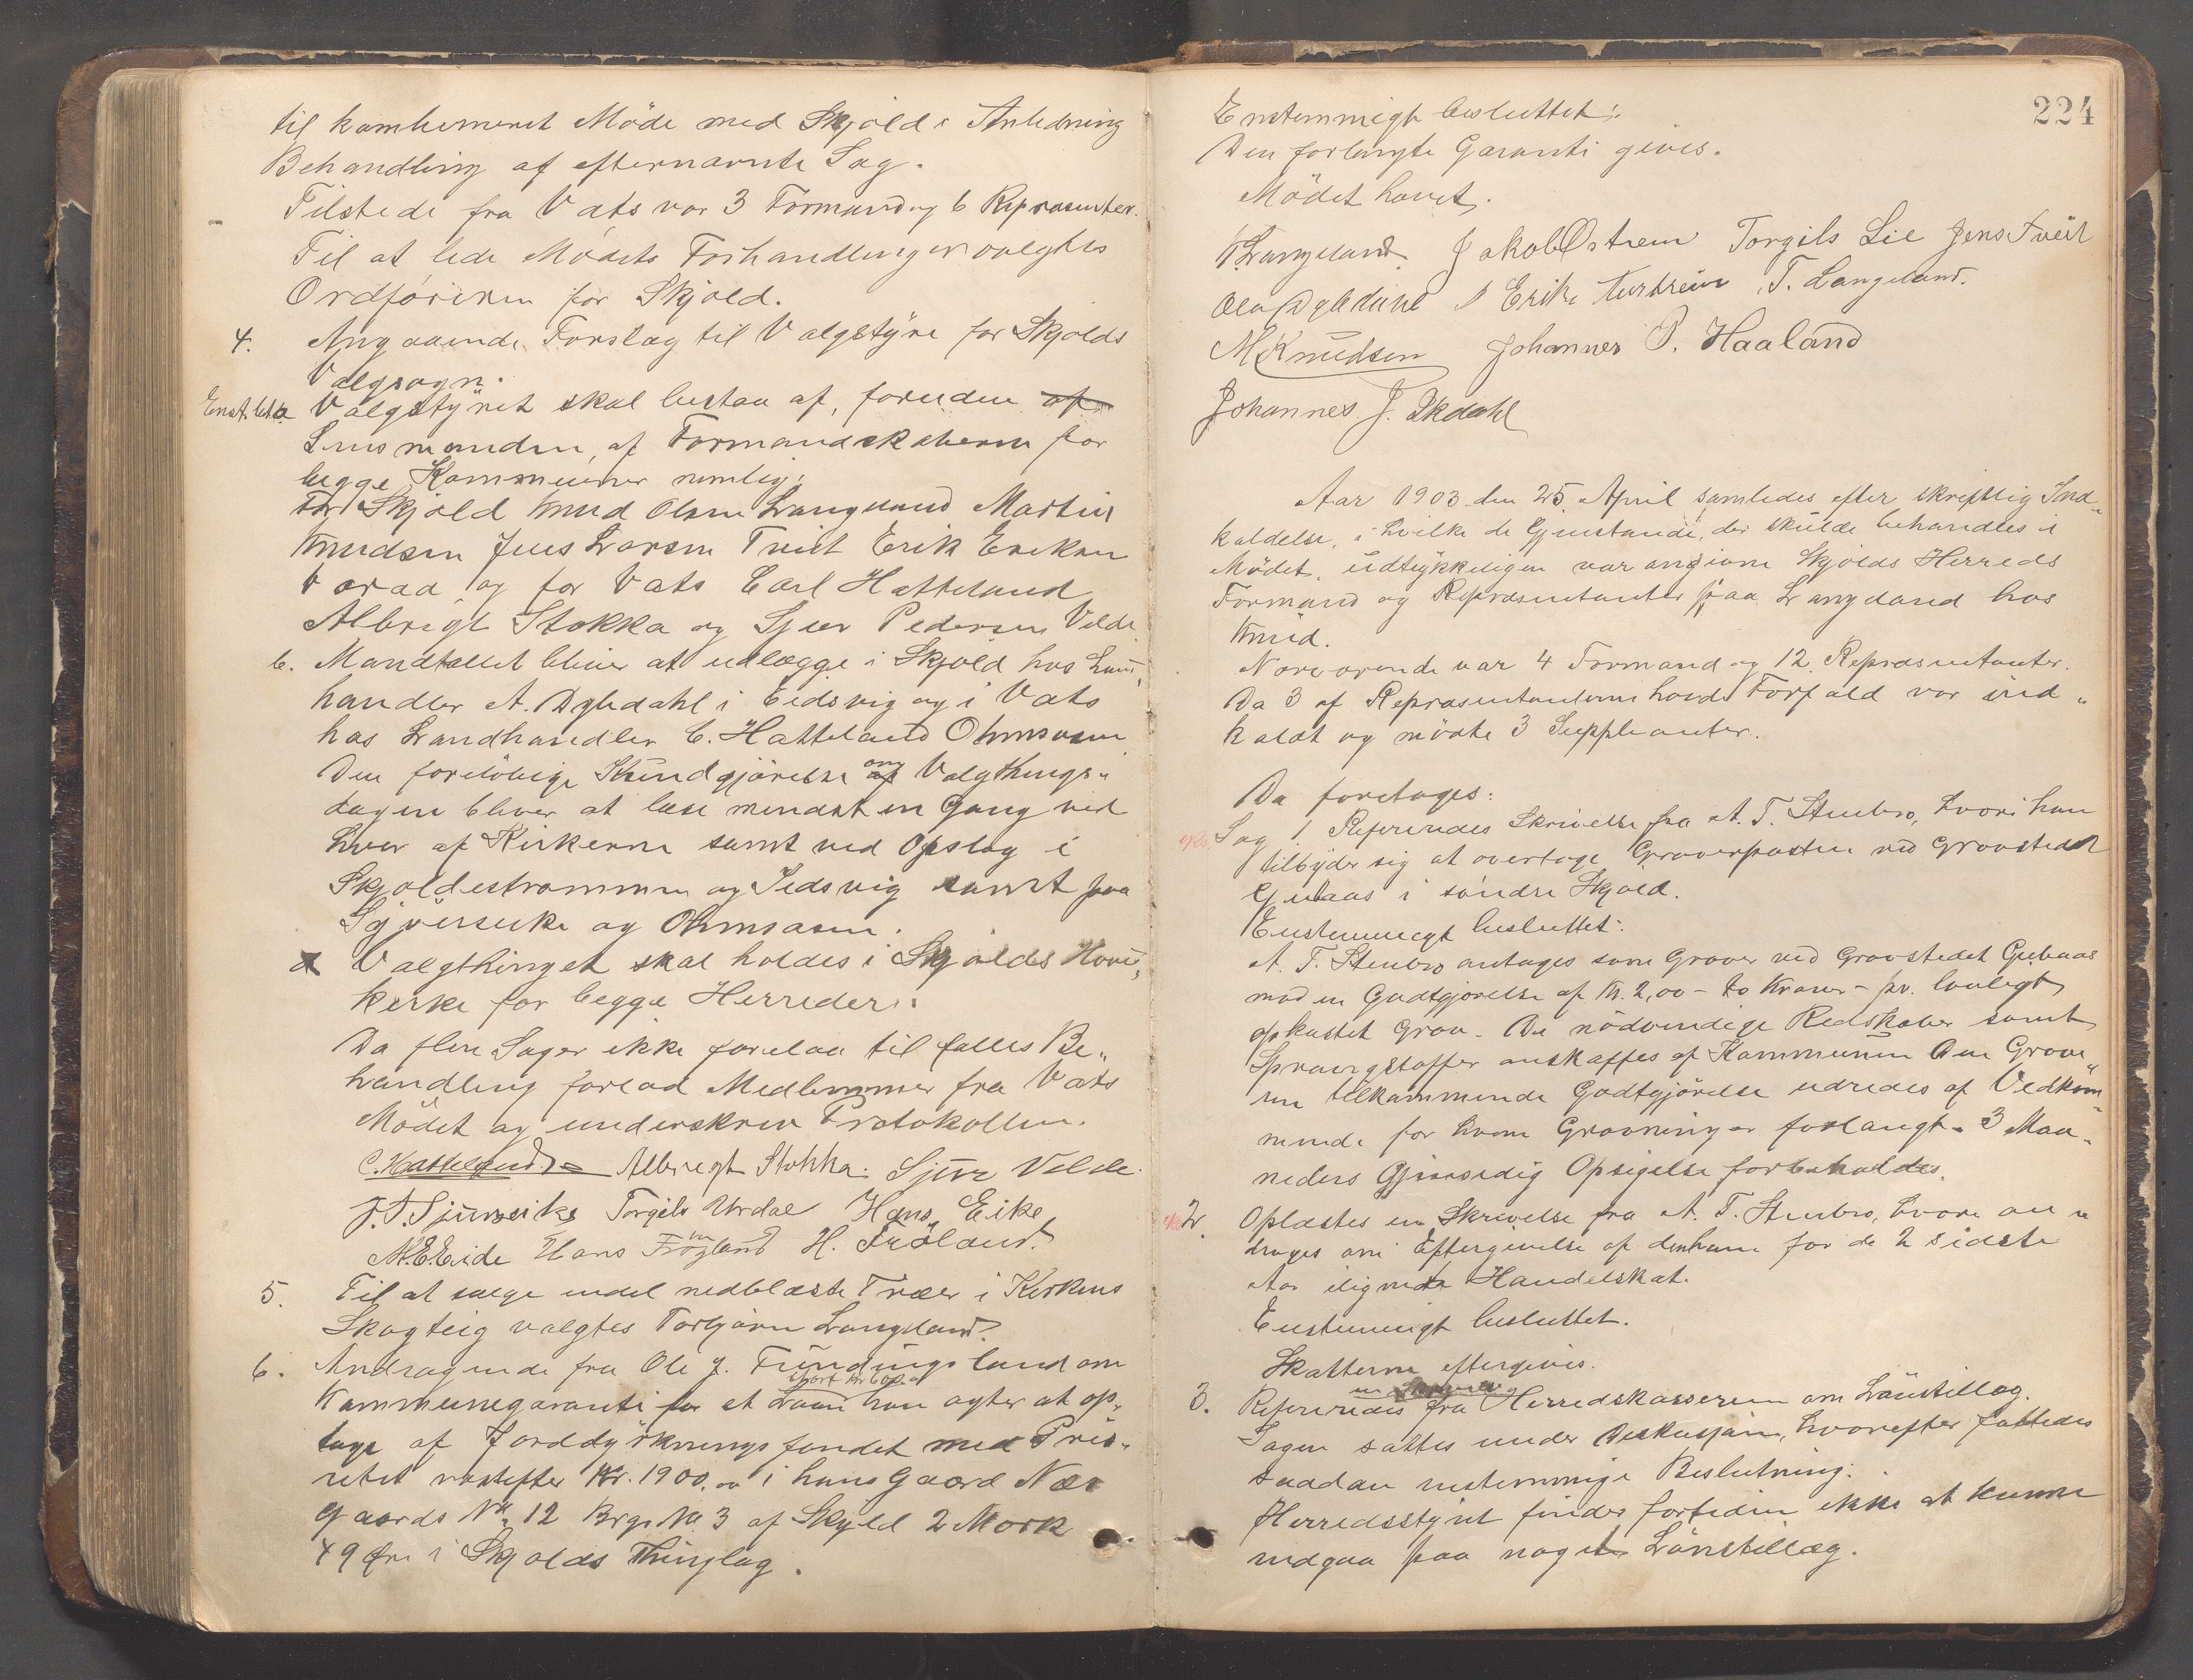 til kombineret Møde med Skjold i Anledning
Behandling af efternævnte Sag.
Tilstede fra Vats var 3 Formænd og 6 Repræsenter.
Til at lede Mødets Forhandlinger valgtes
Ordføreren for Skjold.
4. Angaaende Forslag til Valgstyre for Skjolds
Valgsogn.
Enst. besl. a Valgstyret skal bestaa af, foruden af
Lensmanden, af Formandskaberne for
begge Kommuner nemlig:
For Skjold Knud Olsen Langeland Martin
Knudsen Jens Larsen Tveit Erik Eriksen
Varaa og for Vats Carl Hatteland
Albrigt Stokka og Sjur Pedersen Velde
b. Mandtallet bliver at udlægge i Skjold hos Land„
handler A. Dybdahl i Eidsvig og i Vats
hos Landhandler C. Hatteland Ohmsosen
Den foreløbige Kundgjørelse om af Valgthings„
dagen bliver at læse mindst en Gang ved
hver af Kirkerne samt ved Opslag i
Skjoldestrømmen og Isdsvig samt paa
Sjøverseike og Ohmsosen.
Valgthinget skal holdes i Skjolds Hoved„
kirke for begge Herreder.
Da flere Sager ikke forelaa til fælles Be„
handling forlod Medlemmer fra Vats
Mødet og underskrev Protokollen.
C. Hatteland Albregt Stokka. Sjur Velde.
J. T. Sjurseike Torgils Urdal Hans Eike
M. E. Eide Hans Frøyland H. Frøland.
5. Til at sælge endel nedblæste Træer i Kirkens
Skogteig valgtes Torbjørn Langeland.
6. Andragende fra Ole J. Fundingsland om
Kommunegaranti for et Laan han agter at op„
tage af Jorddyrkningsfondet med Prio„
ritet næstefter Kr. 1900.00 i hans Gaard Næs
Gaards No. 12 Brgs No 3 af Skyld 2 Mork
49 Øre i Skjolds Thinglag.
224
Enstemmigt besluttet:
Den forlangte Garanti gives.
Mødet hævet.
K. Langeland. Jakob Østrem Torgils Lie Jens Tveit
Ola Dybdahl Erik T. Langeland.
M Knudsen Johannes P. Haaland
Johannes J. Økdahl
Aar 1903 den 25. April samledes efter skriftlig Ind„
kaldelse, i hvilke de Gjenstande, der skulde behandles i
Mødet, udtrykkeligen var angivne Skjolds Herreds
Formænd og Repræsentanter paa Langeland hos
Knud.
Nærværende var 4 Formænd og 12 Repræsentanter.
Da 3 af Repræsentanterne havde Forfald var ind„
kaldt og mødte 3 Suppleanter.
Da foretages:
Sag 1. Refereredes Skrivelse fra A. T. Stenbro, hvori han
tilbyder sig at overtage Graverposten ved Gravstedet
Gulaas i søndre Skjold.
Enstemmigt besluttet:
A. T. Stenbro antages som Graver ved Gravstedet Gulaas
mod en Godtgjørelse af Kr. 2,00 – to Kroner – pr. lovligt
opkastet Grav. De nødvendige Redskaber samt
Sprængstoffer anskaffes af Kommunen Den Grave„
ren tilkommende Godtgjørelse udredes af Vedkom„
mende for hvem Gravning er forlangt. 3 Maa„
neders Gjensidig Opsigelse forbeholdes.
2. Oplæstes en Skrivelse fra A. T. Stenbro, hvori an„
drages om Eftergivelse af den ham for de 2 sidste
Aar ilignede Handelskat.
Enstemmigt besluttet.
Skatterne eftergives.
3. Refereredes fra Herredskassereren om Lønstillæg.
Sagen sattes under Diskusjon, hvorefter fattedes
saadan enstemmige Beslutning:
Herredsstyret finder fortiden ikke at kunne
indgaa paa noget Lønstillæg.